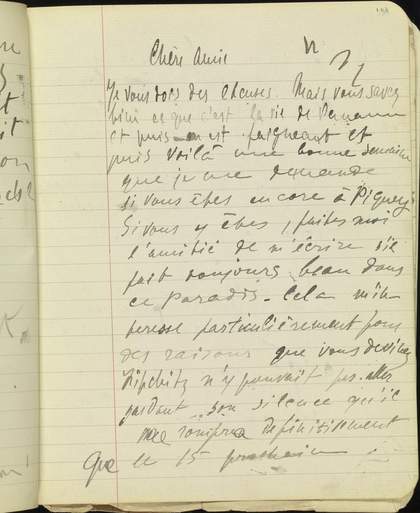 Chère Amie
Je vous dois des excuses. Mais vous savez
bien ce que c'est la vie de
et puis on est faignant et
puis voilà une bonne semaine
que je me demande
si vous êtes encore à Piquey
Si vous y êtes, faites moi
l'amitié de m'écrire s'il
fait toujours beau dans
ce paradis. Cela m'in-
teresse particulièrement pour
des raisons que vous devinez
Lipchitz n'y pouvait pas aller
gardant son silence qu'il
ne rompra definitivement
que le 15 prochain.